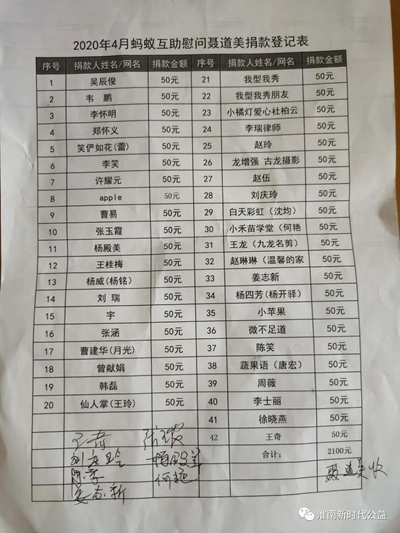 2020年4月蚂蚁互助慰问聂道美捐款登记表
序号 捐款人姓名/网名 捐款金额 序号 捐款人姓名/网名 捐款金额
1 吴辰俊 50元 21 我型我秀 50元
2 韦 鹏 50元 22 我型我秀朋友 50元
3 李怀明 50元 23 小橘灯爱心社柏云 50元
4 郑怀义 50元 24 李瑞律师 50元
5 笑俨如花(蕾) 50元 25 赵玲 50元
6 李笑 50元 26 龙增强 古龙摄影 50元
7 许耀元 50元 27 赵伍 50元
8 apple 50元 28 刘庆玲 50元
9 曹易 50元 29 白天彩虹（沈均） 50元
10 张玉霞 50元 30 小禾苗学堂（何艳 50元
11 杨殿美 50元 31 王龙（九龙名剪） 50元
12 王桂梅 50元 32 赵琳琳（温馨的家 50元
13 杨威(杨铭) 50元 33 姜志新 50元
14 刘 瑞 50元 34 杨四芳(杨开驿) 50元
15 宇 50元 35 小苹果 50元
16 张涵 50元 36 微不足道 50元
17 曹建华(月光) 50元 37 陈笑 50元
18 曾献娟 50元 38 蔬果语（唐宏） 50元
19 韩磊 50元 39 周薇 50元
20 仙人掌(王玲) 50元 40 李士丽 50元
41 徐晓燕 50元
42 王奇 50元
合计: 2100元
王奇
刘庆玲
陈笑 何艳
姜志新
聂道美收
淮南新时代公益